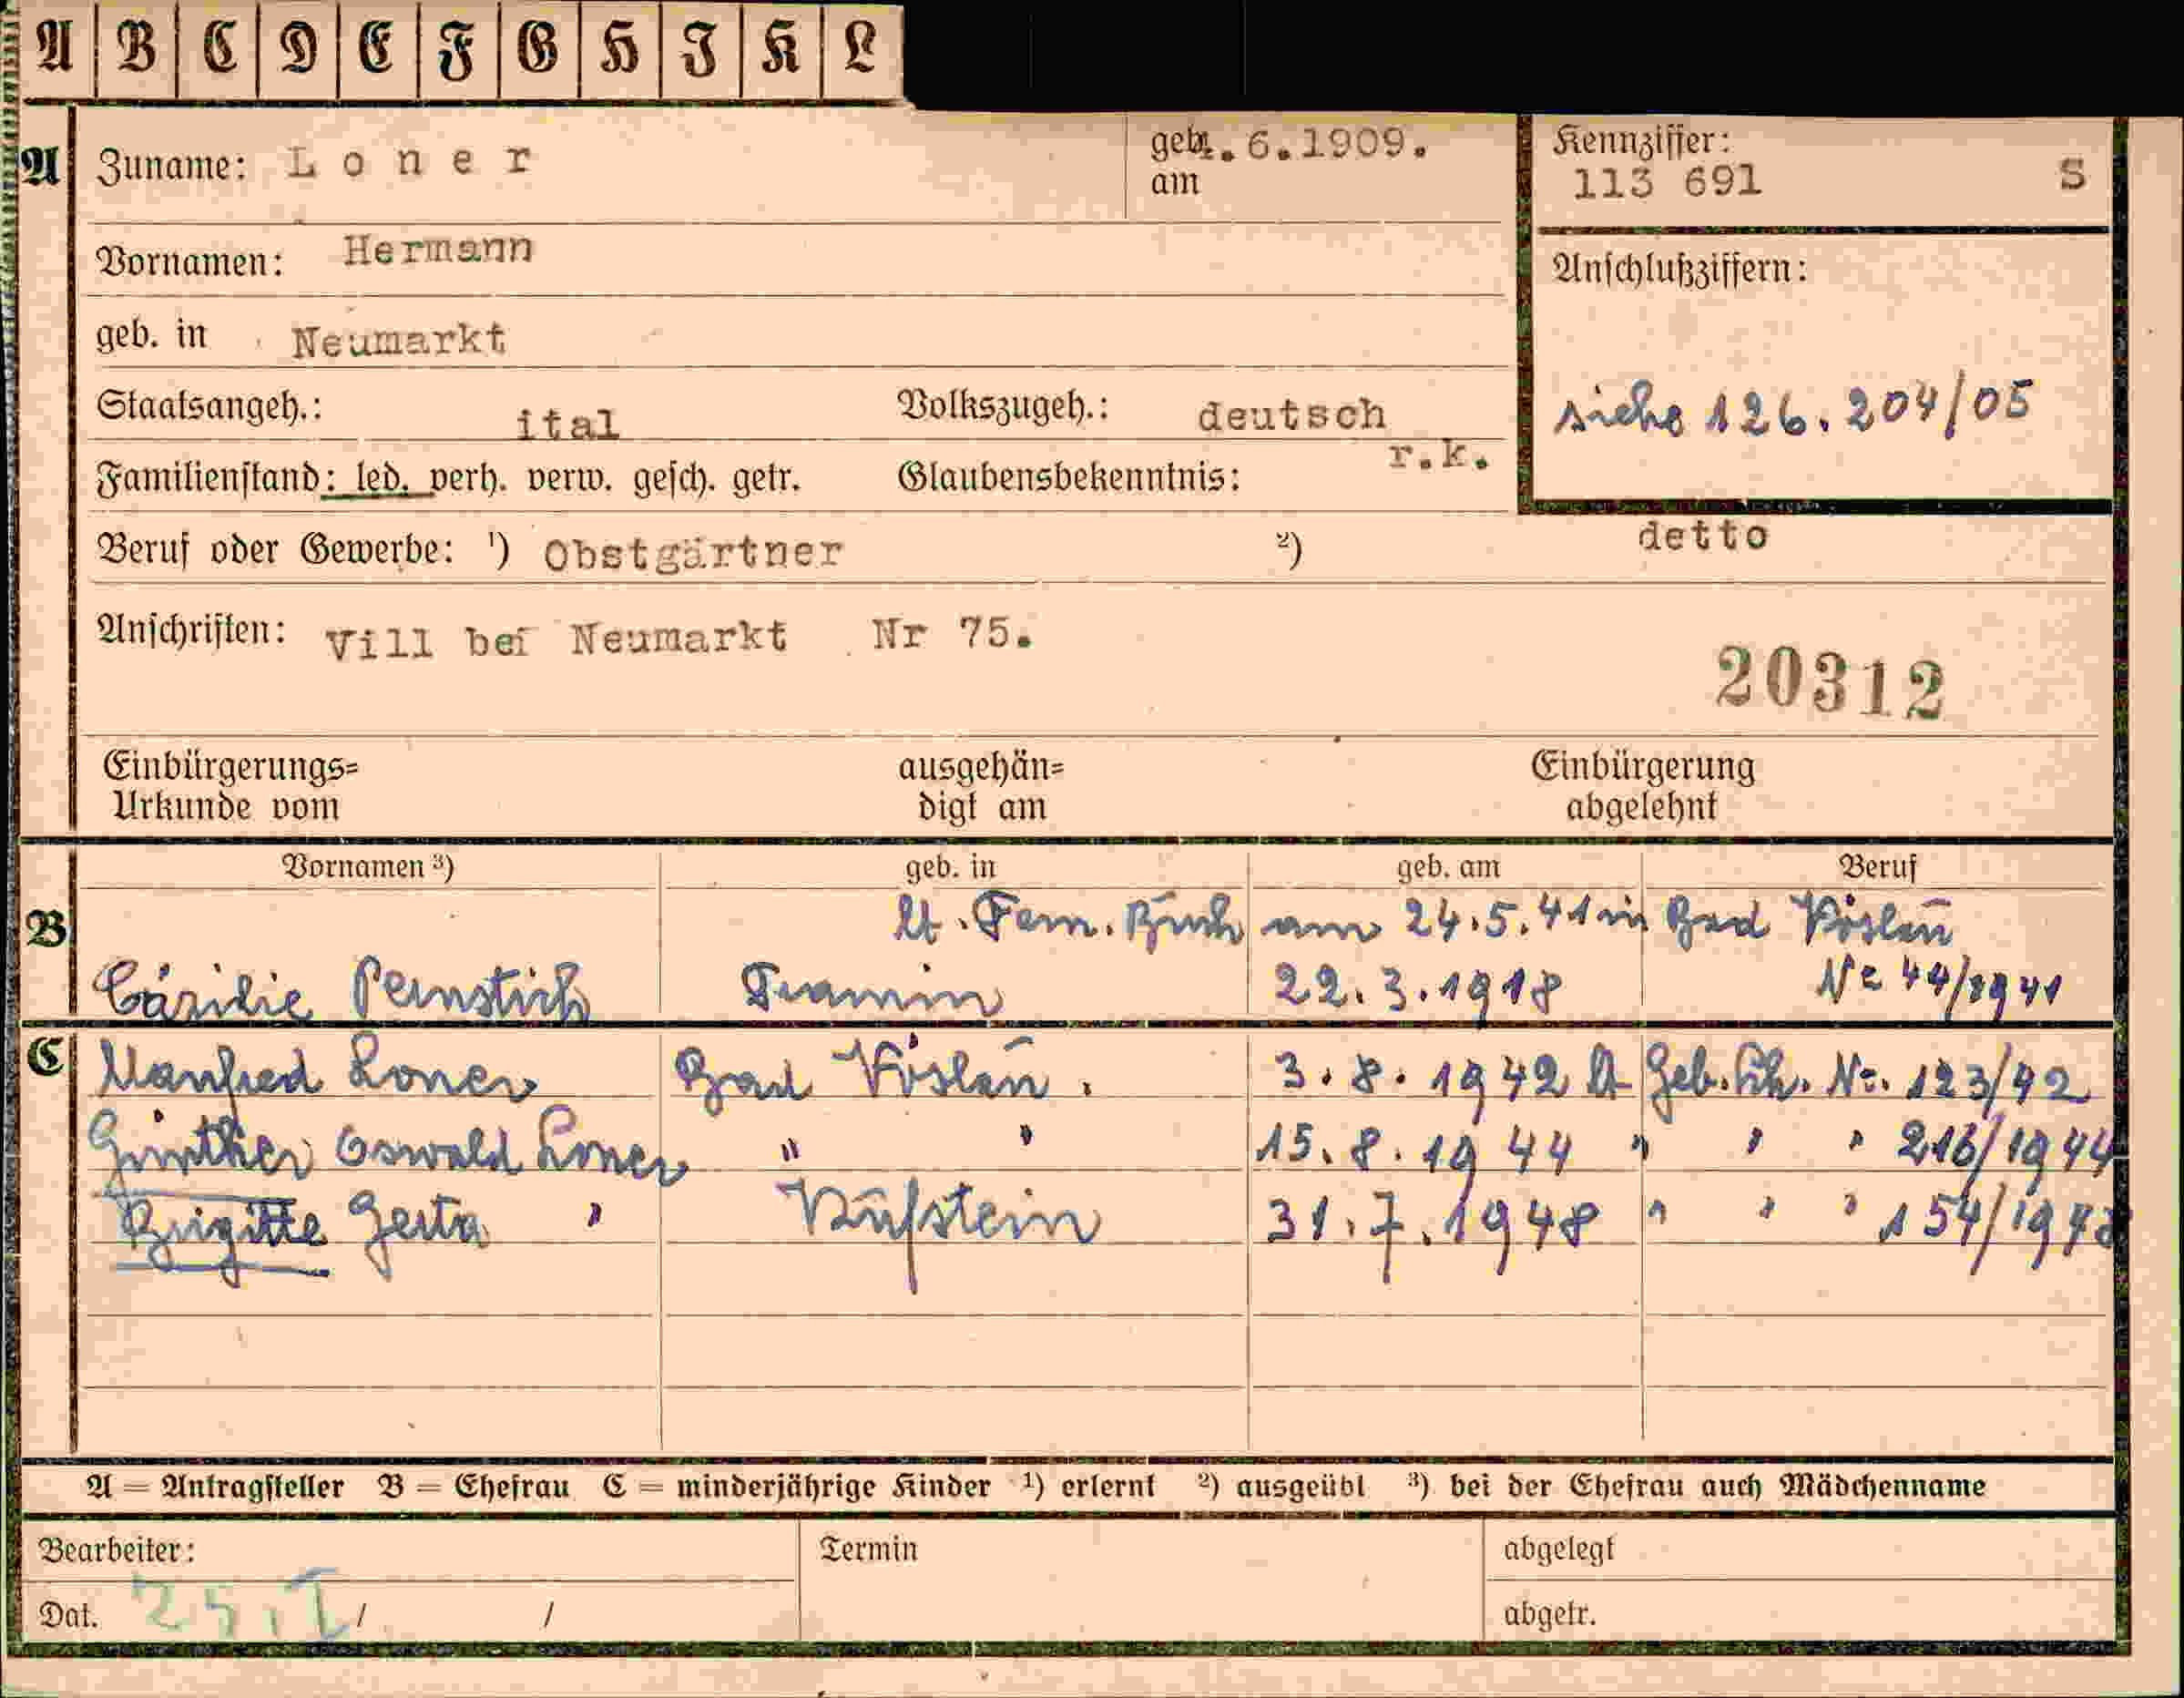 A B C D E F G H I K L
A Zuname: Loner geb. 4.6.1909. am
Kennziffer: 113 691 S
Vornamen: Hermann
Anschlußziffern:
geb. in Neumarkt
siehe 126.204/05
Staatsangeh.: ital Volkszugeh.: deutsch
Familienstand: led. verh. verw. gesch. getr. Glaubensbekenntnis: r.k.
Beruf oder Gewerbe: ¹) Obstgärtner ²) detto
Anschriften: Vill bei Neumarkt Nr 75.
20312
Einbürgerungs= ausgehän= Einbürgerung
Urkunde vom digt am abgelehnt
Vornamen ³) geb. in geb. am Beruf
B lt. Fam. Buch am 24.5.41 in Bad Vöslau
Cäzilie Pernstich Tramin 22.3.1918 Nr 44/1941
C Manfred Loner Bad Vöslau. 3.8.1942 lt Geb. Sch. Nr. 123/42
Günther Oswald Loner " " 15.8.1944 " " " 216/1944
Brigitte Gerta " Kufstein 31.7.1948 " " " 154/1948
A = Antragsteller B = Ehefrau C = minderjährige Kinder ¹) erlernt ²) ausgeübt ³) bei der Ehefrau auch Mädchenname
Bearbeiter: Termin abgelegt
Dat. 25.I / / abgetr.